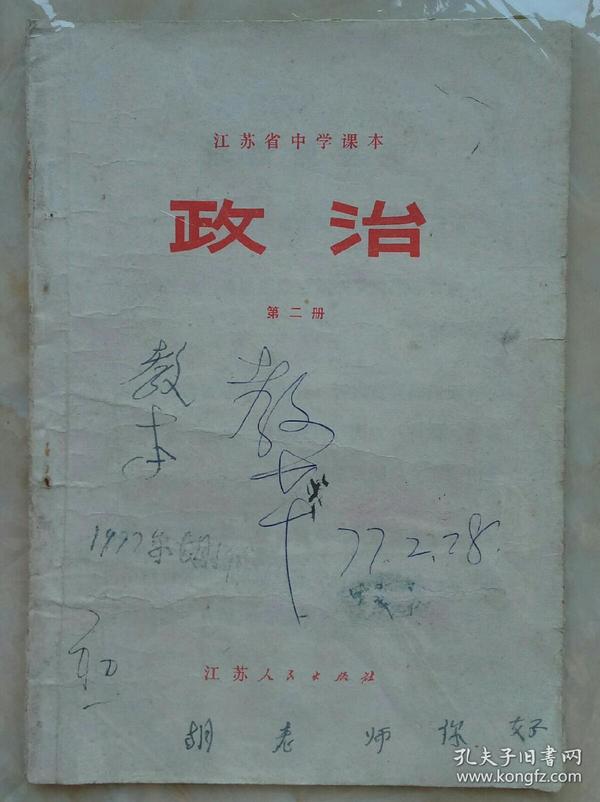 江苏省中学课本
政治
第二册
教本
77.2.28.
1977年
初一
江苏人民出版社
胡老师你好
孔夫子旧书网
www.kongfz.com